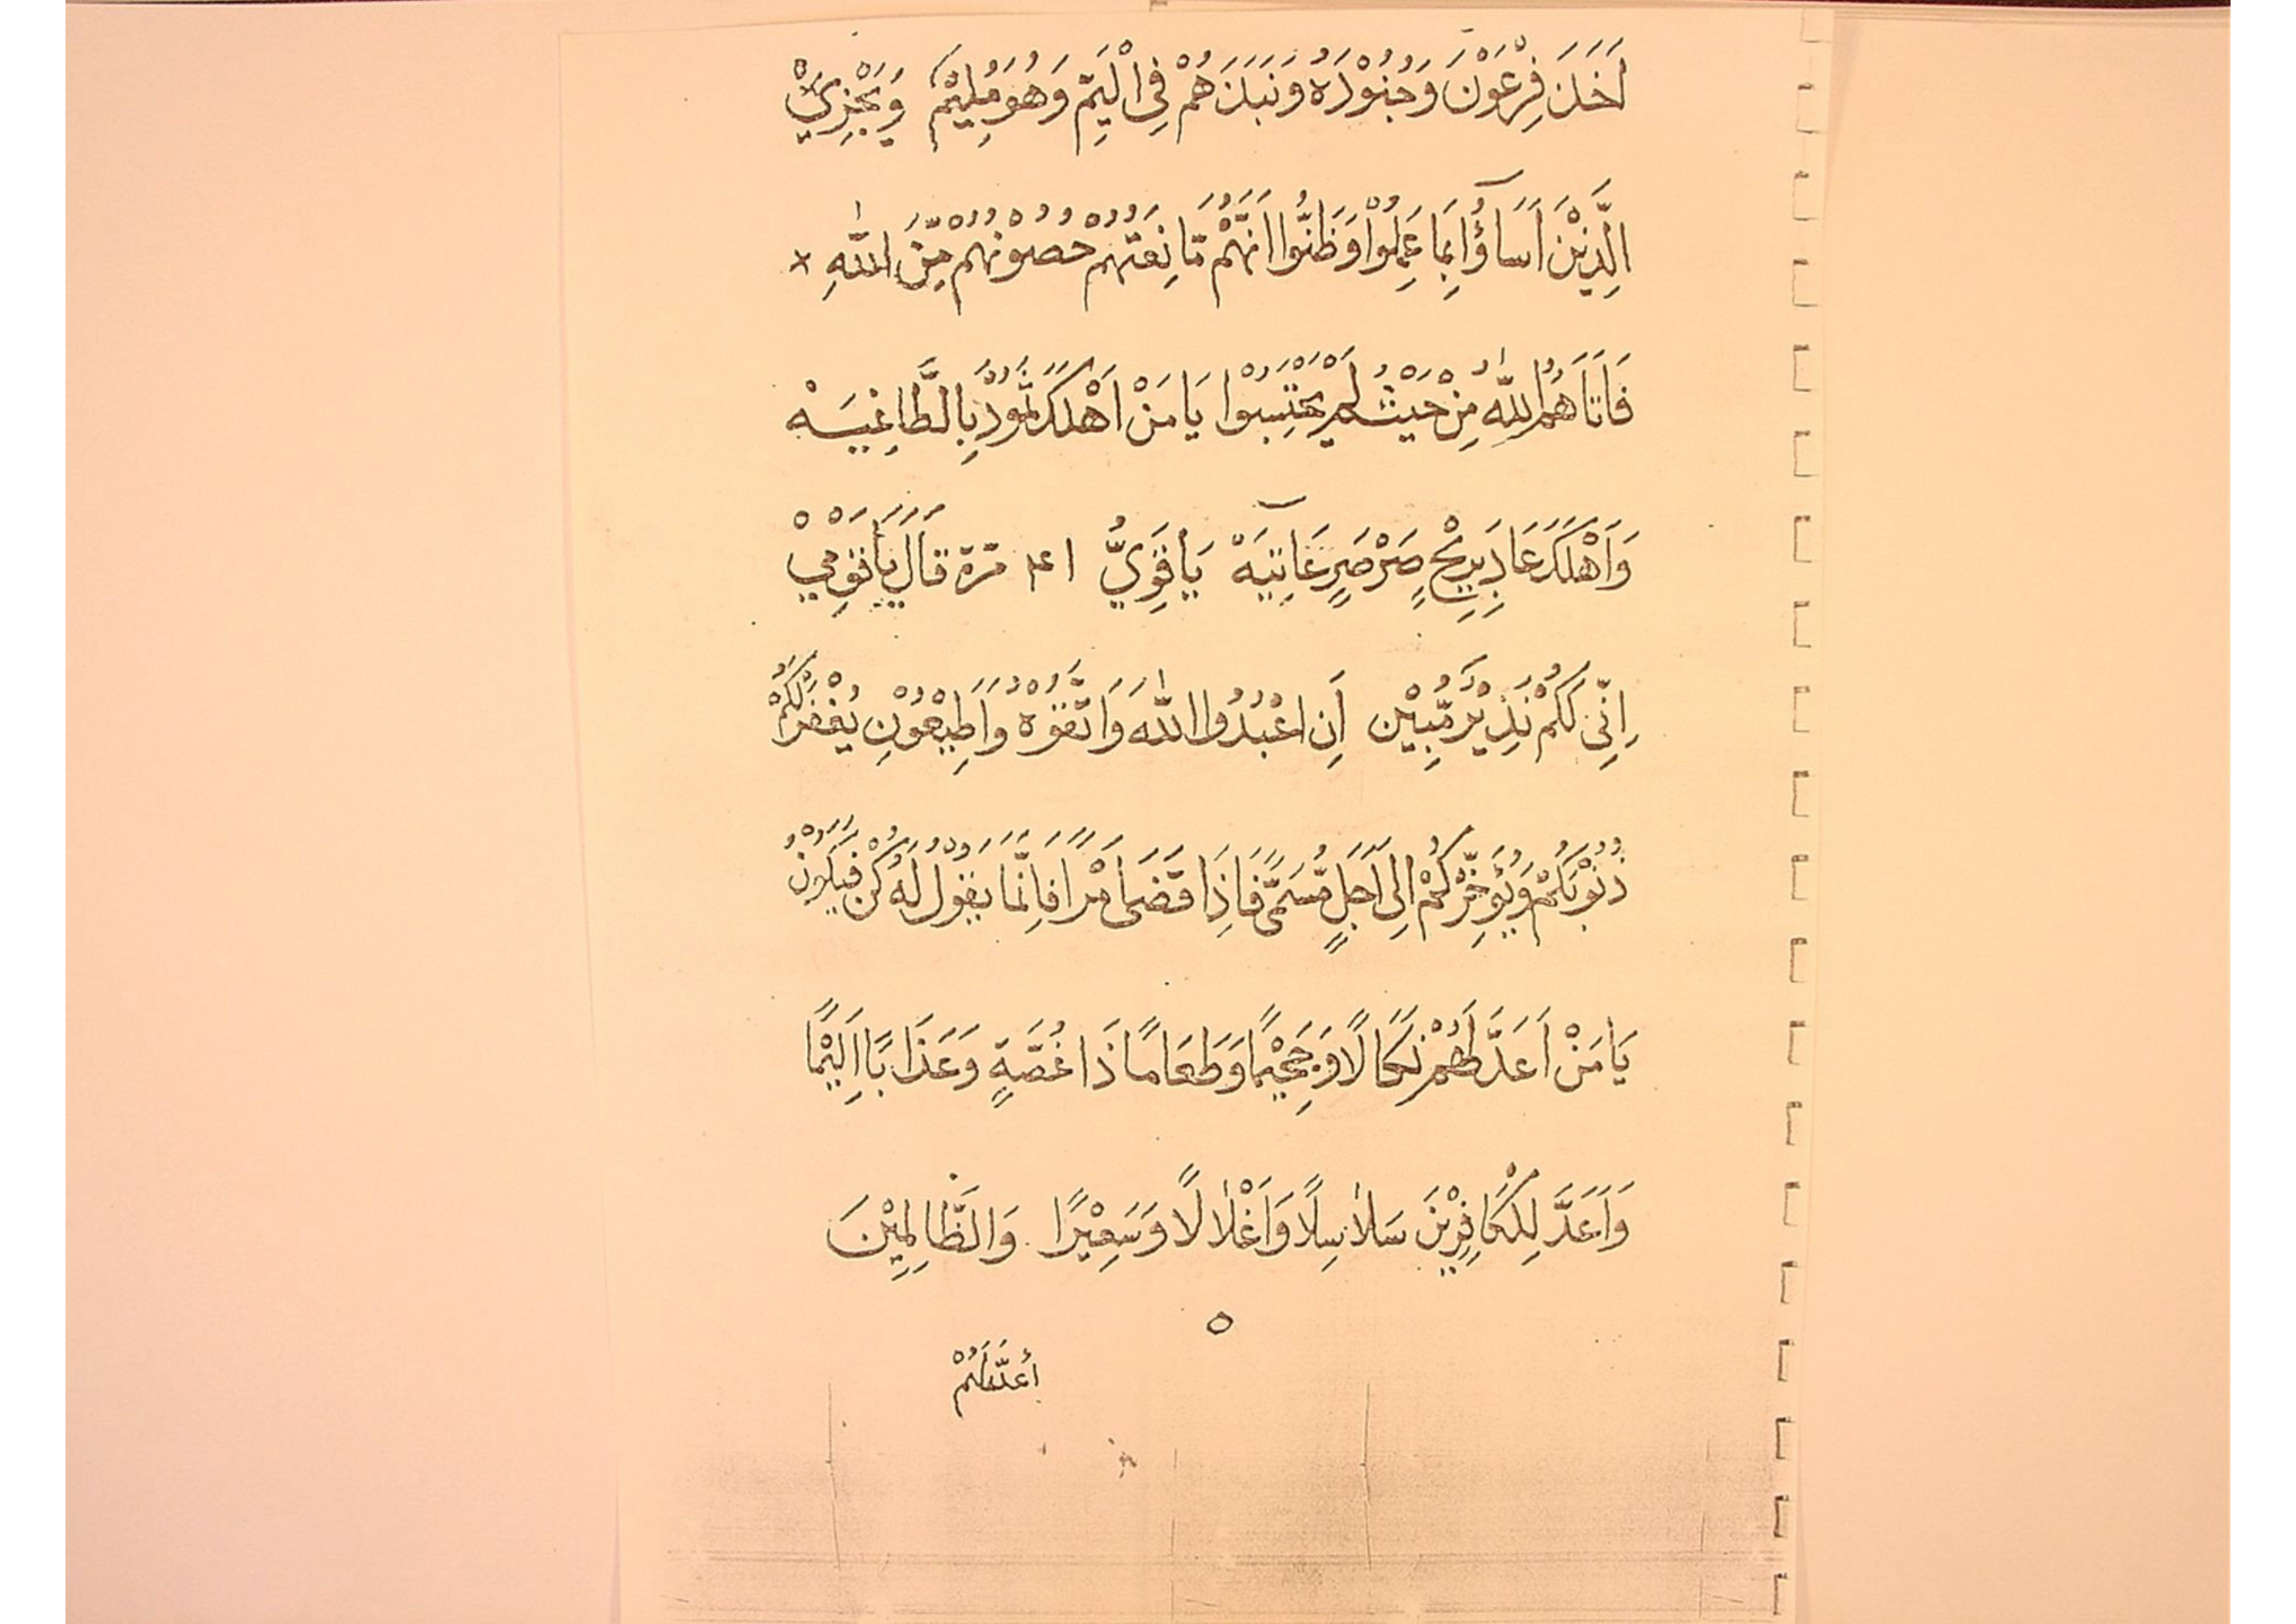 اَخَذَ فِرْعَوْنَ وَجُنُوْدَهُ وَنَبَذَهُمْ فِى الْيَمِّ وَهُوَ مُلِيْمٌ وَيَجْزِيْ
الَّذِيْنَ اَسَاؤُا بِمَا عَمِلُوْا وَظَنُّوا اَنَّهُمْ مَّانِعَتُهُمْ حُصُوْنُهُمْ مِّنَ اللّٰهِ *
فَاَتَاهُمُ اللّٰهُ مِنْ حَيْثُ لَمْ يَحْتَسِبُوْا يَا مَنْ اَهْلَكَ ثَمُوْدَ بِالطَّاغِيَهْ
وَاَهْلَكَ عَادَ بِرِيْحٍ صَرْصَرٍ عَاتِيَهْ يَا قَوِيُّ ١٤١ مرة قَالَ يَا قَوْمِيْ
اِنِّى لَكُمْ نَذِيْرٌ مُّبِيْن اَنِ اعْبُدُوا اللّٰهَ وَاتَّقُوْهُ وَاَطِيْعُوْنِ يَغْفِرْلَكُمْ
ذُنُوْبَكُمْ وَيُؤَخِّرْكُمْ اِلٰى اَجَلٍ مُّسَمًّى فَاِذَا قَضَى اَمْرًا فَاِنَّمَا يَقُوْلُ لَهُ كُنْ فَيَكُوْنُ
يَا مَنْ اَعَدَّ لَهُمْ نَكَالًا وَجَحِيْمًا وَطَعَامًا ذَا غُصَّةٍ وَعَذَابًا اَلِيْمًا
وَاَعَدَّ لِلْكَافِرِيْنَ سَلَاسِلًا وَاَغْلَالًا وَسَعِيْرًا وَالظَّالِمِيْنَ
أَعَدَّ لَهُمْ